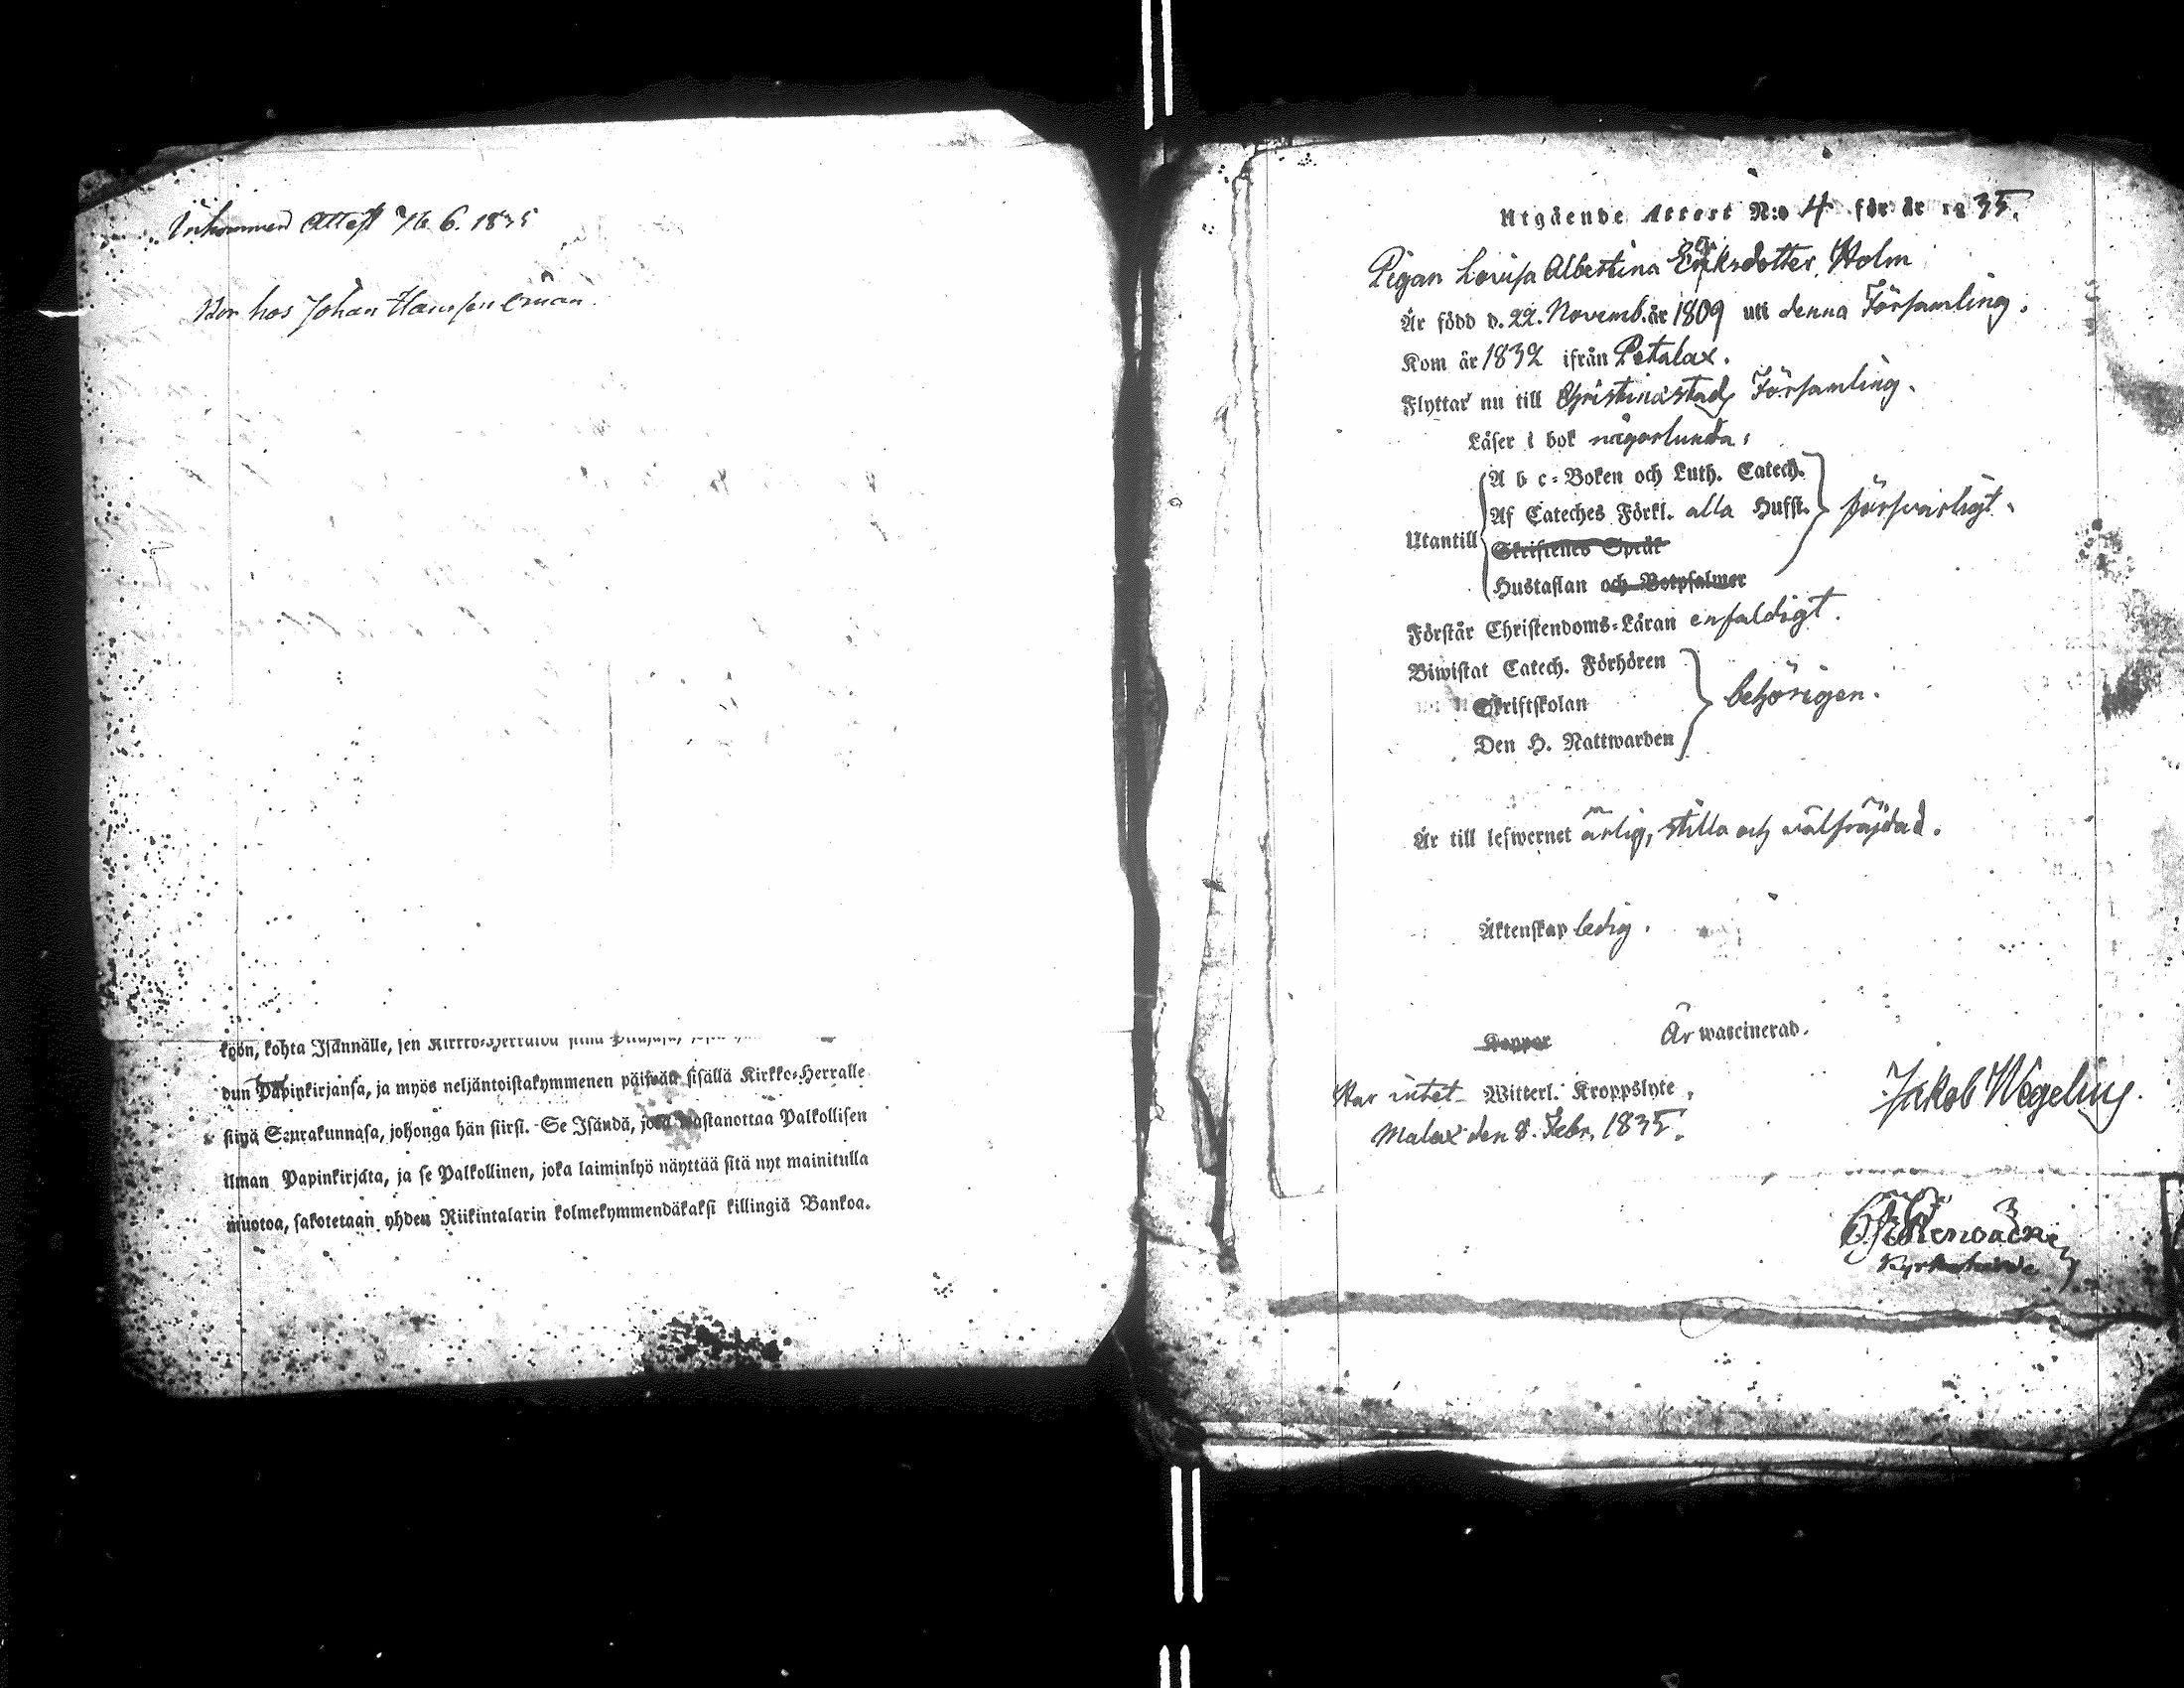 Inkommen Attest No 6. 1835
Bor hos Johan
kyön, kohta Isännälle, sen
dun Papinkirjansa, ja myös neljäntoistakymmenen päiwän sisällä Kirkko-Herralle
siinä Seurakunnasa, johonga hän siirsi. Se Isändä, joka wastanottaa Palkollisen
ilman Papinkirjata, ja se Palkollinen, joka laiminlyö näyttää sitä nyt mainitulla
muotoa, sakotetaan yhden Riikintalarin kolmekymmendäkaksi killingiä Bankoa.
Utgående Attest N:o 4 för år 1835.
Pigan Lovisa Albertina Eriksdotter Holm
Är född d. 22. Novemb. år 1809 uti denna Församling.
Kom år 1832 ifrån Petalax.
Flyttar nu till Christinæstads Församling.
Läser i bok någorlunda;
A b c-Boken och Luth. Catech.
Af Cateches Förkl. alla Hufst. försvarligt.
Utantill
Skriftenes Språk
Hustaflan och Botpsalmer
Förstår Christendoms-Läran enfaldigt.
Biwistat Catech. Förhören
Skriftskolan behörigen.
Den H. Nattwarden
Är till lefwernet ärlig, stilla och välfräjdad.
Äktenskap ledig.
Koppor Är waccinerad.
Har intet Witterl. Kroppslyte.
Jakob Wegelius.
Malax den 8. Febr. 1835.
Kyrkoherde